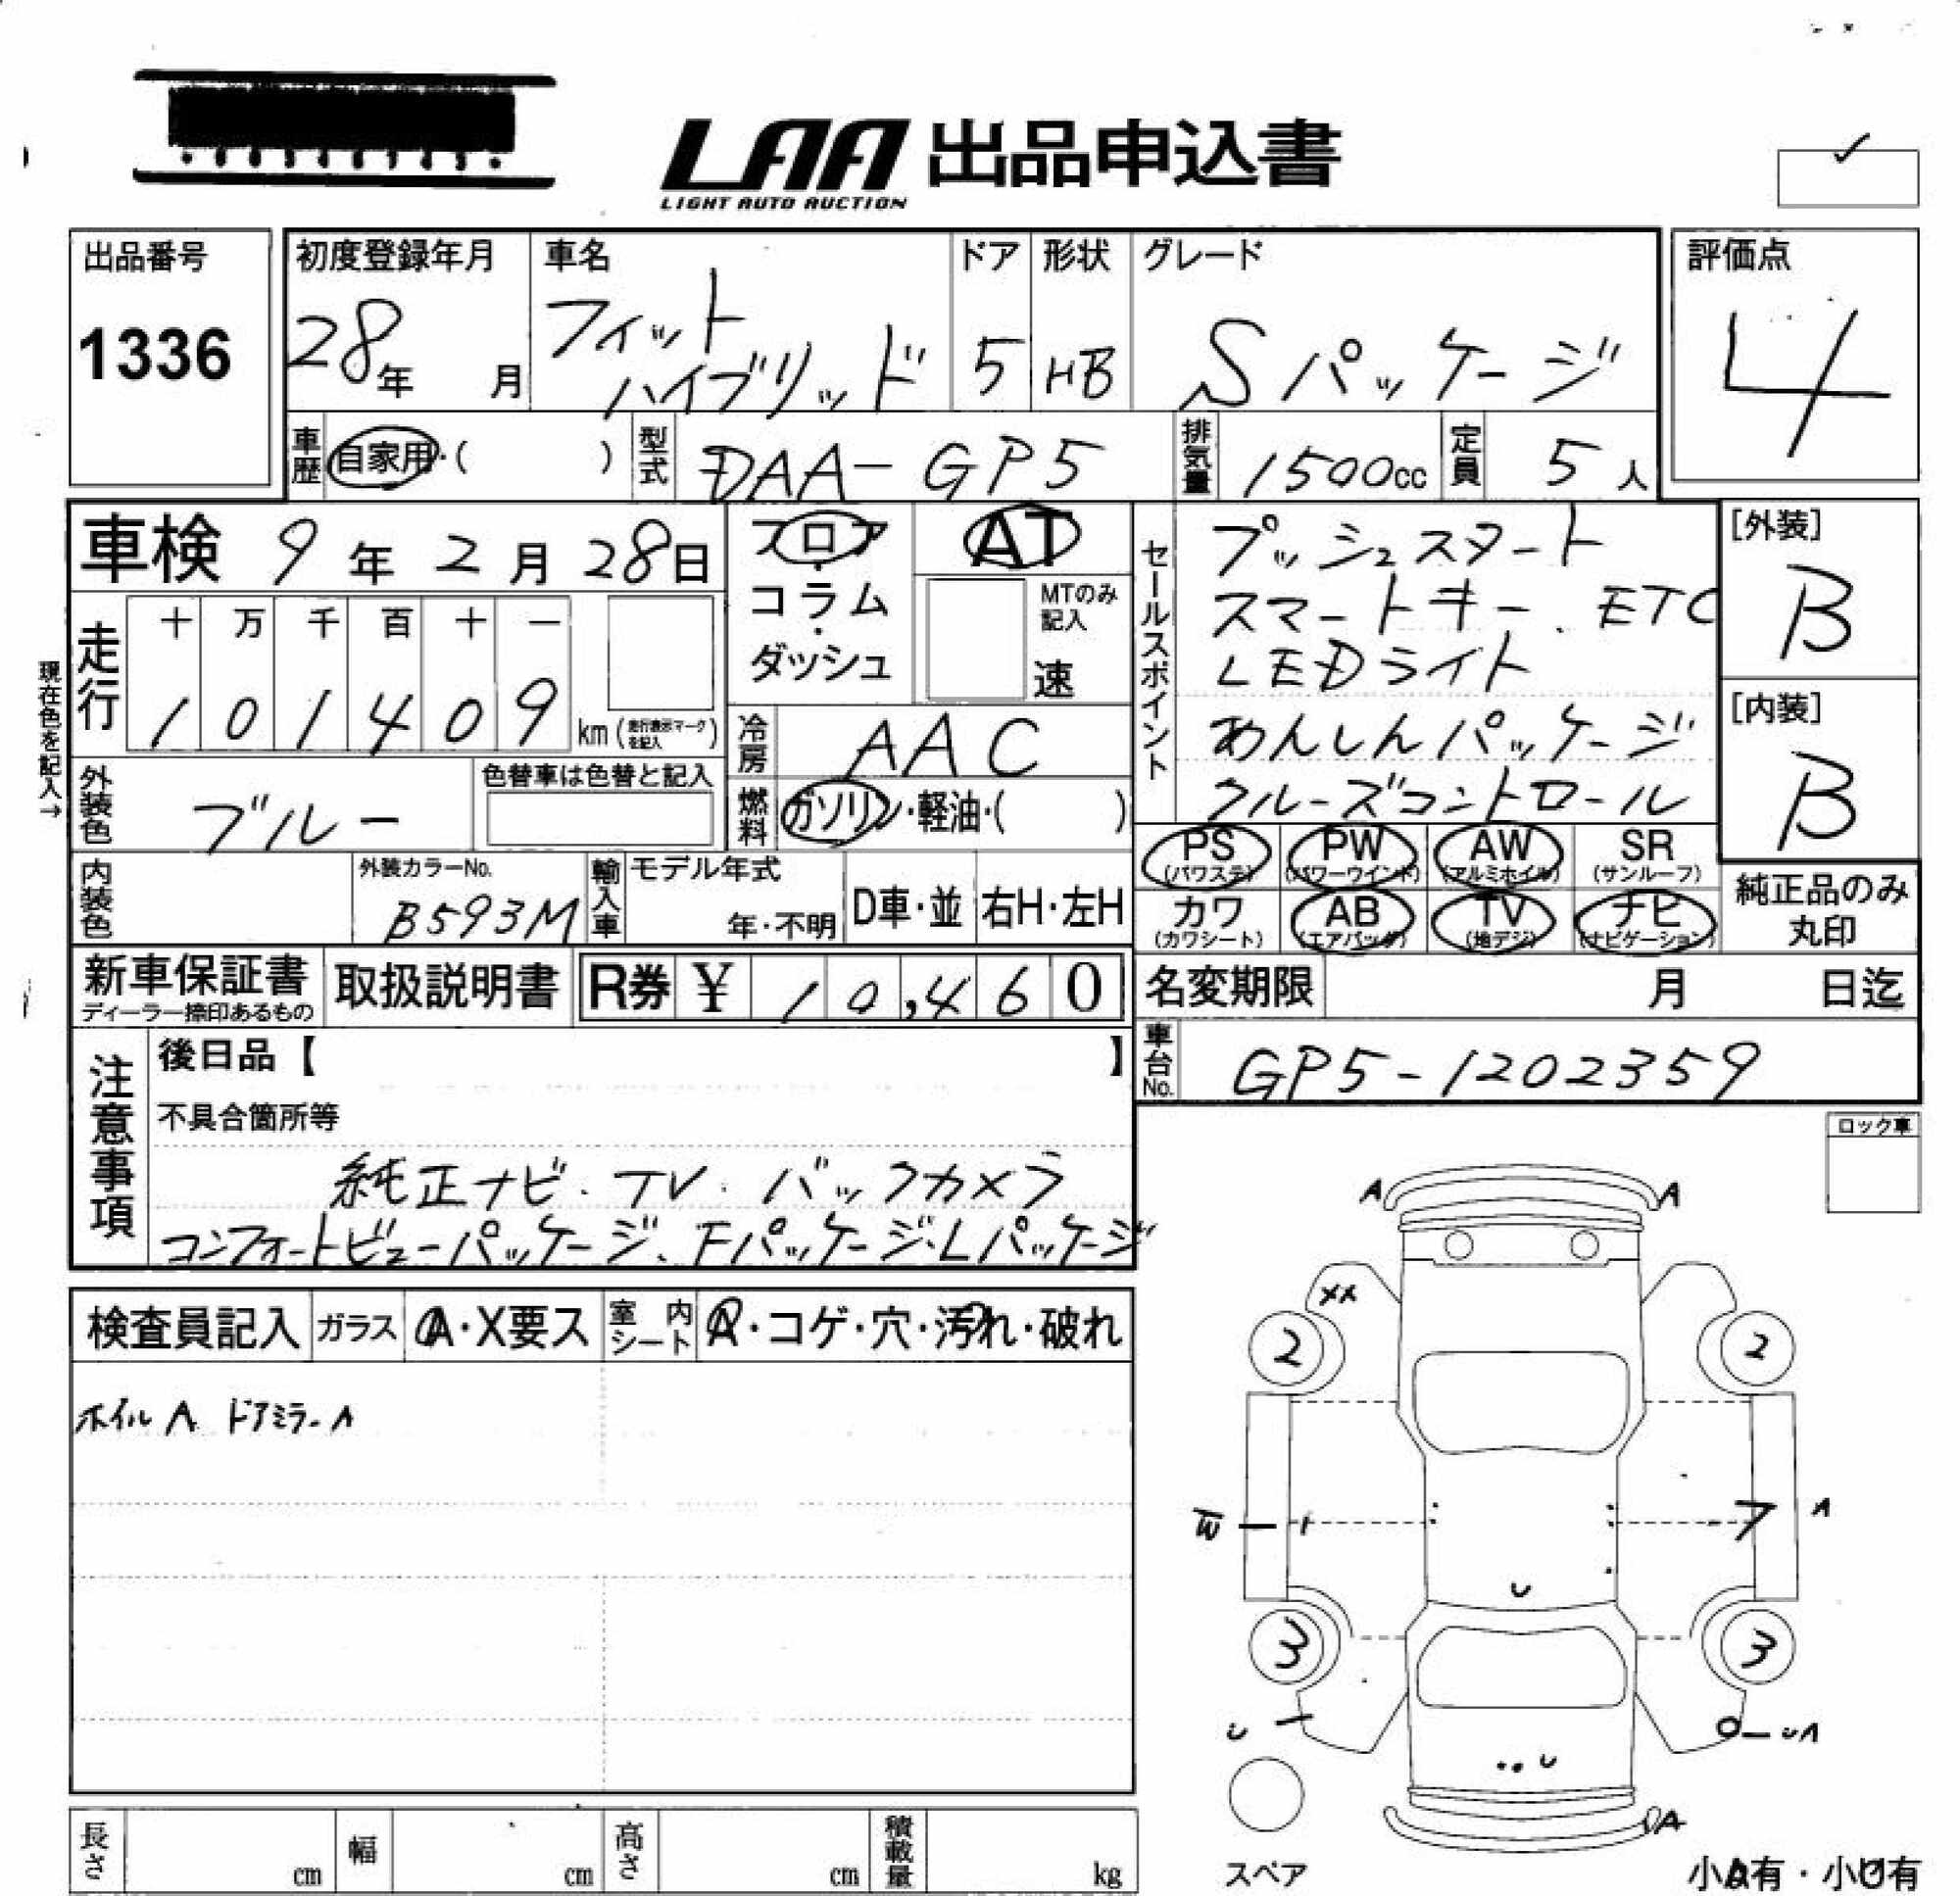 LAA 出品申込書
LIGHT AUTO AUCTION
出品番号
1336
初度登録年月
28年 月
車名
フィット
ハイブリッド
ドア
5
形状
HB
グレード
Sパッケージ
評価点
4
車歴 自家用・( )
型式 DAA-GP5
排気量 1500cc
定員 5人
車検 9年2月28日
フロア・コラム・ダッシュ
AT
MTのみ記入
速
走行 十 万 千 百 十 一
1 0 1 4 0 9 km(走行表示マークを記入)
現在色を記入→
外装色 ブルー
色替車は色替と記入
冷房 AAC
燃料 ガソリン・軽油・( )
セールスポイント
プッシュスタート
スマートキー. ETC
LEDライト
あんしんパッケージ
クルーズコントロール
[外装]
B
[内装]
B
PS (パワステ) PW (パワーウインド) AW (アルミホイル) SR (サンルーフ)
カワ (カワシート) AB (エアバッグ) TV (地デジ) ナビ (ナビゲーション)
純正品のみ丸印
内装色
外装カラーNo.
B593M
輸入車
モデル年式
年・不明
D車・並
右H・左H
新車保証書
ディーラー捺印あるもの
取扱説明書
R券 ¥ 10,460
名変期限 月 日迄
車台No. GP5-1202359
注意事項
後日品【 】
不具合箇所等
純正ナビ. TV. バックカメラ
コンフォートビューパッケージ、Fパッケージ、Lパッケージ
ロック車
検査員記入
ガラス A・X要ス
室内シート A・コゲ・穴・汚れ・破れ
ホイルA ドアミラーA
A A
XX
2 2
W A
U
3 3
U UA
U
A
スペア
長さ cm
幅 cm
高さ cm
積載量 kg
小A有・小U有